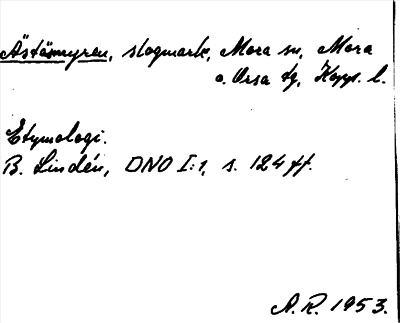 Åstämyren, slogmark, Mora sn, Mora
o. Orsa tg, Kopp. l.
Etymologi.
B. Lindén, DNO I:1, s. 124 ff.
A.R. 1953.